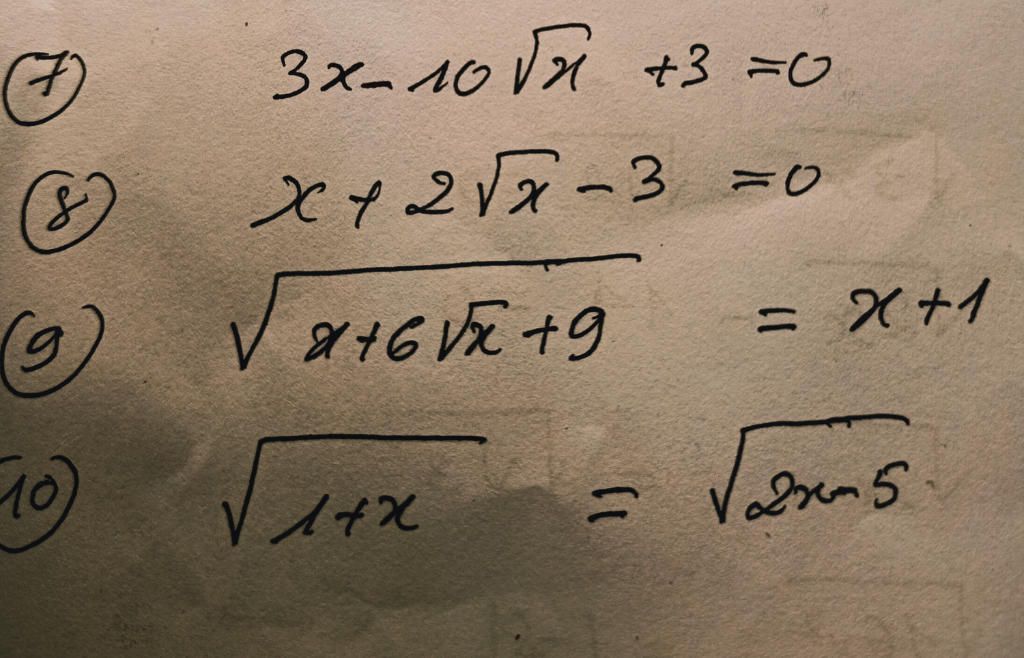 ⑦ 3x - 10√x + 3 = 0
⑧ x + 2√x - 3 = 0
⑨ √(x+6√x+9) = x+1
⑩ √(1+x) = √(2x-5)